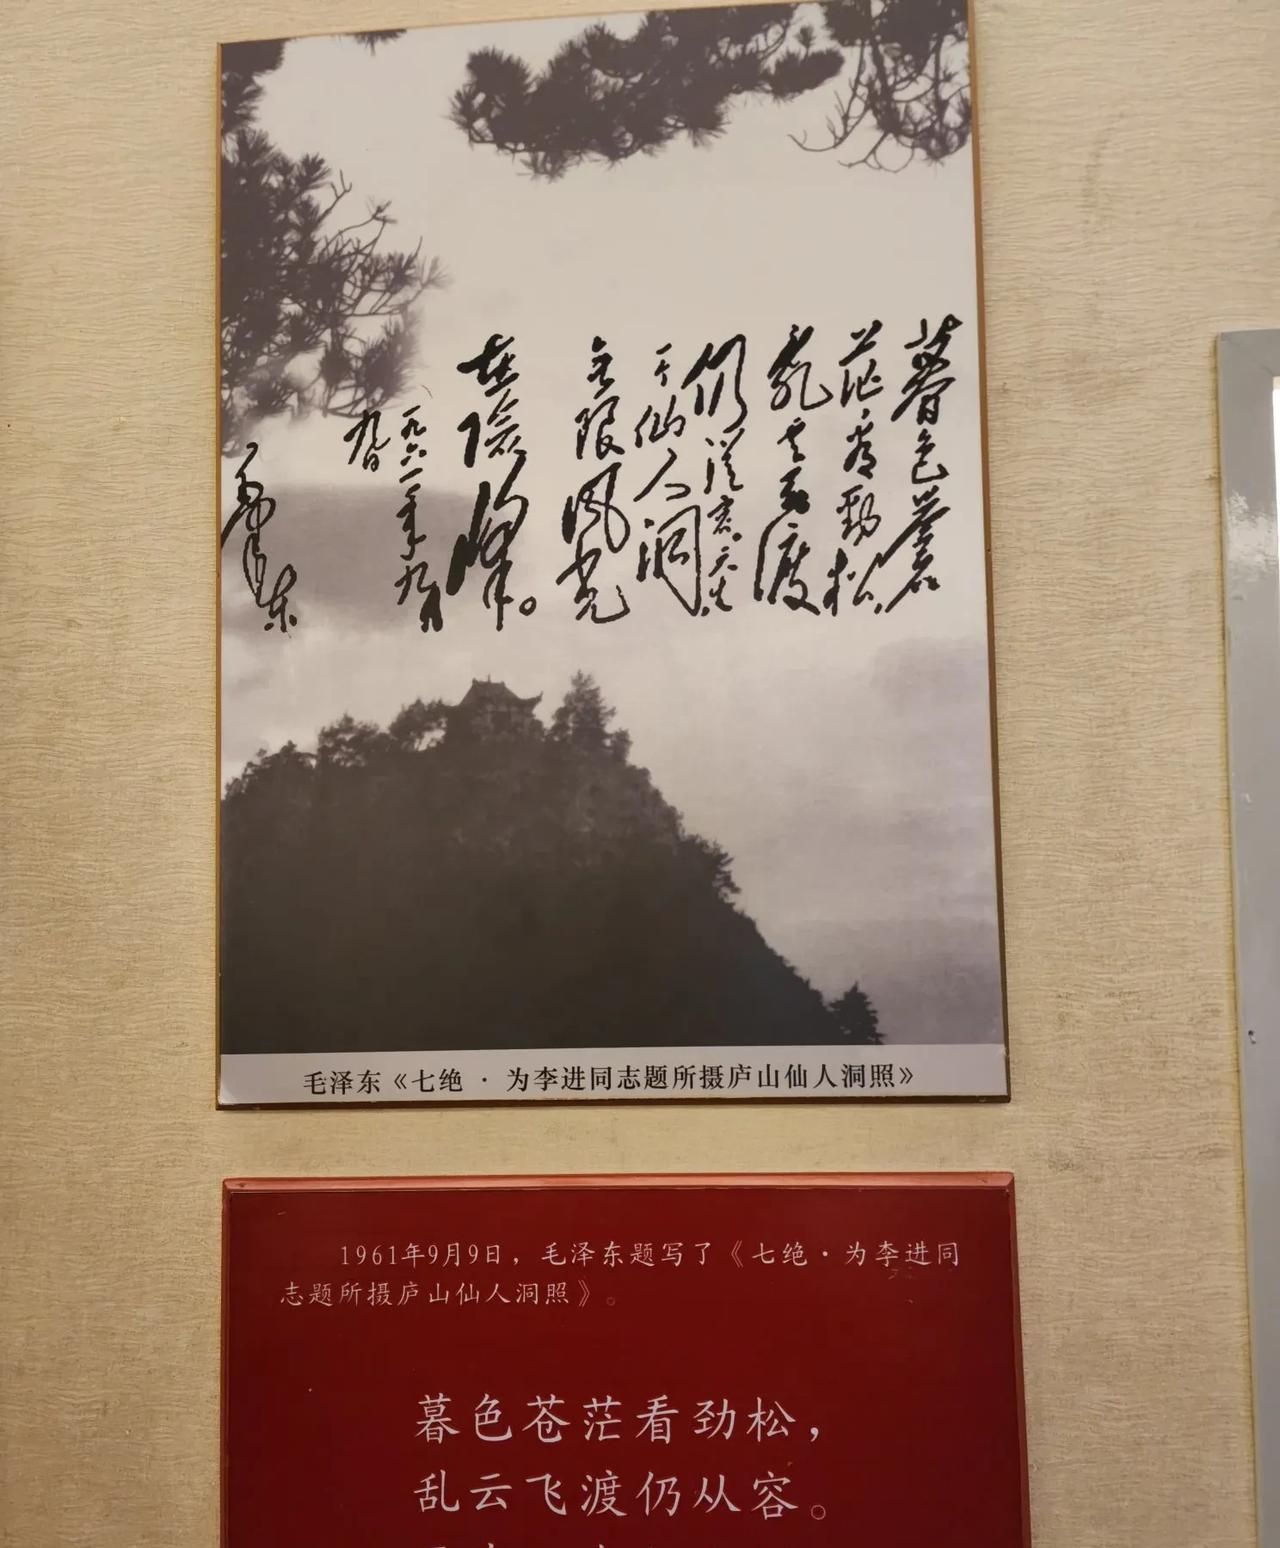 暮色苍
茫看劲松
乱云飞渡
仍从容天生
一个仙人洞
无限风光
在险峰。
一九六一年九月
九日
毛泽东
毛泽东《七绝·为李进同志题所摄庐山仙人洞照》
1961年9月9日，毛泽东题写了《七绝·为李进同
志题所摄庐山仙人洞照》。
暮色苍茫看劲松，
乱云飞渡仍从容。